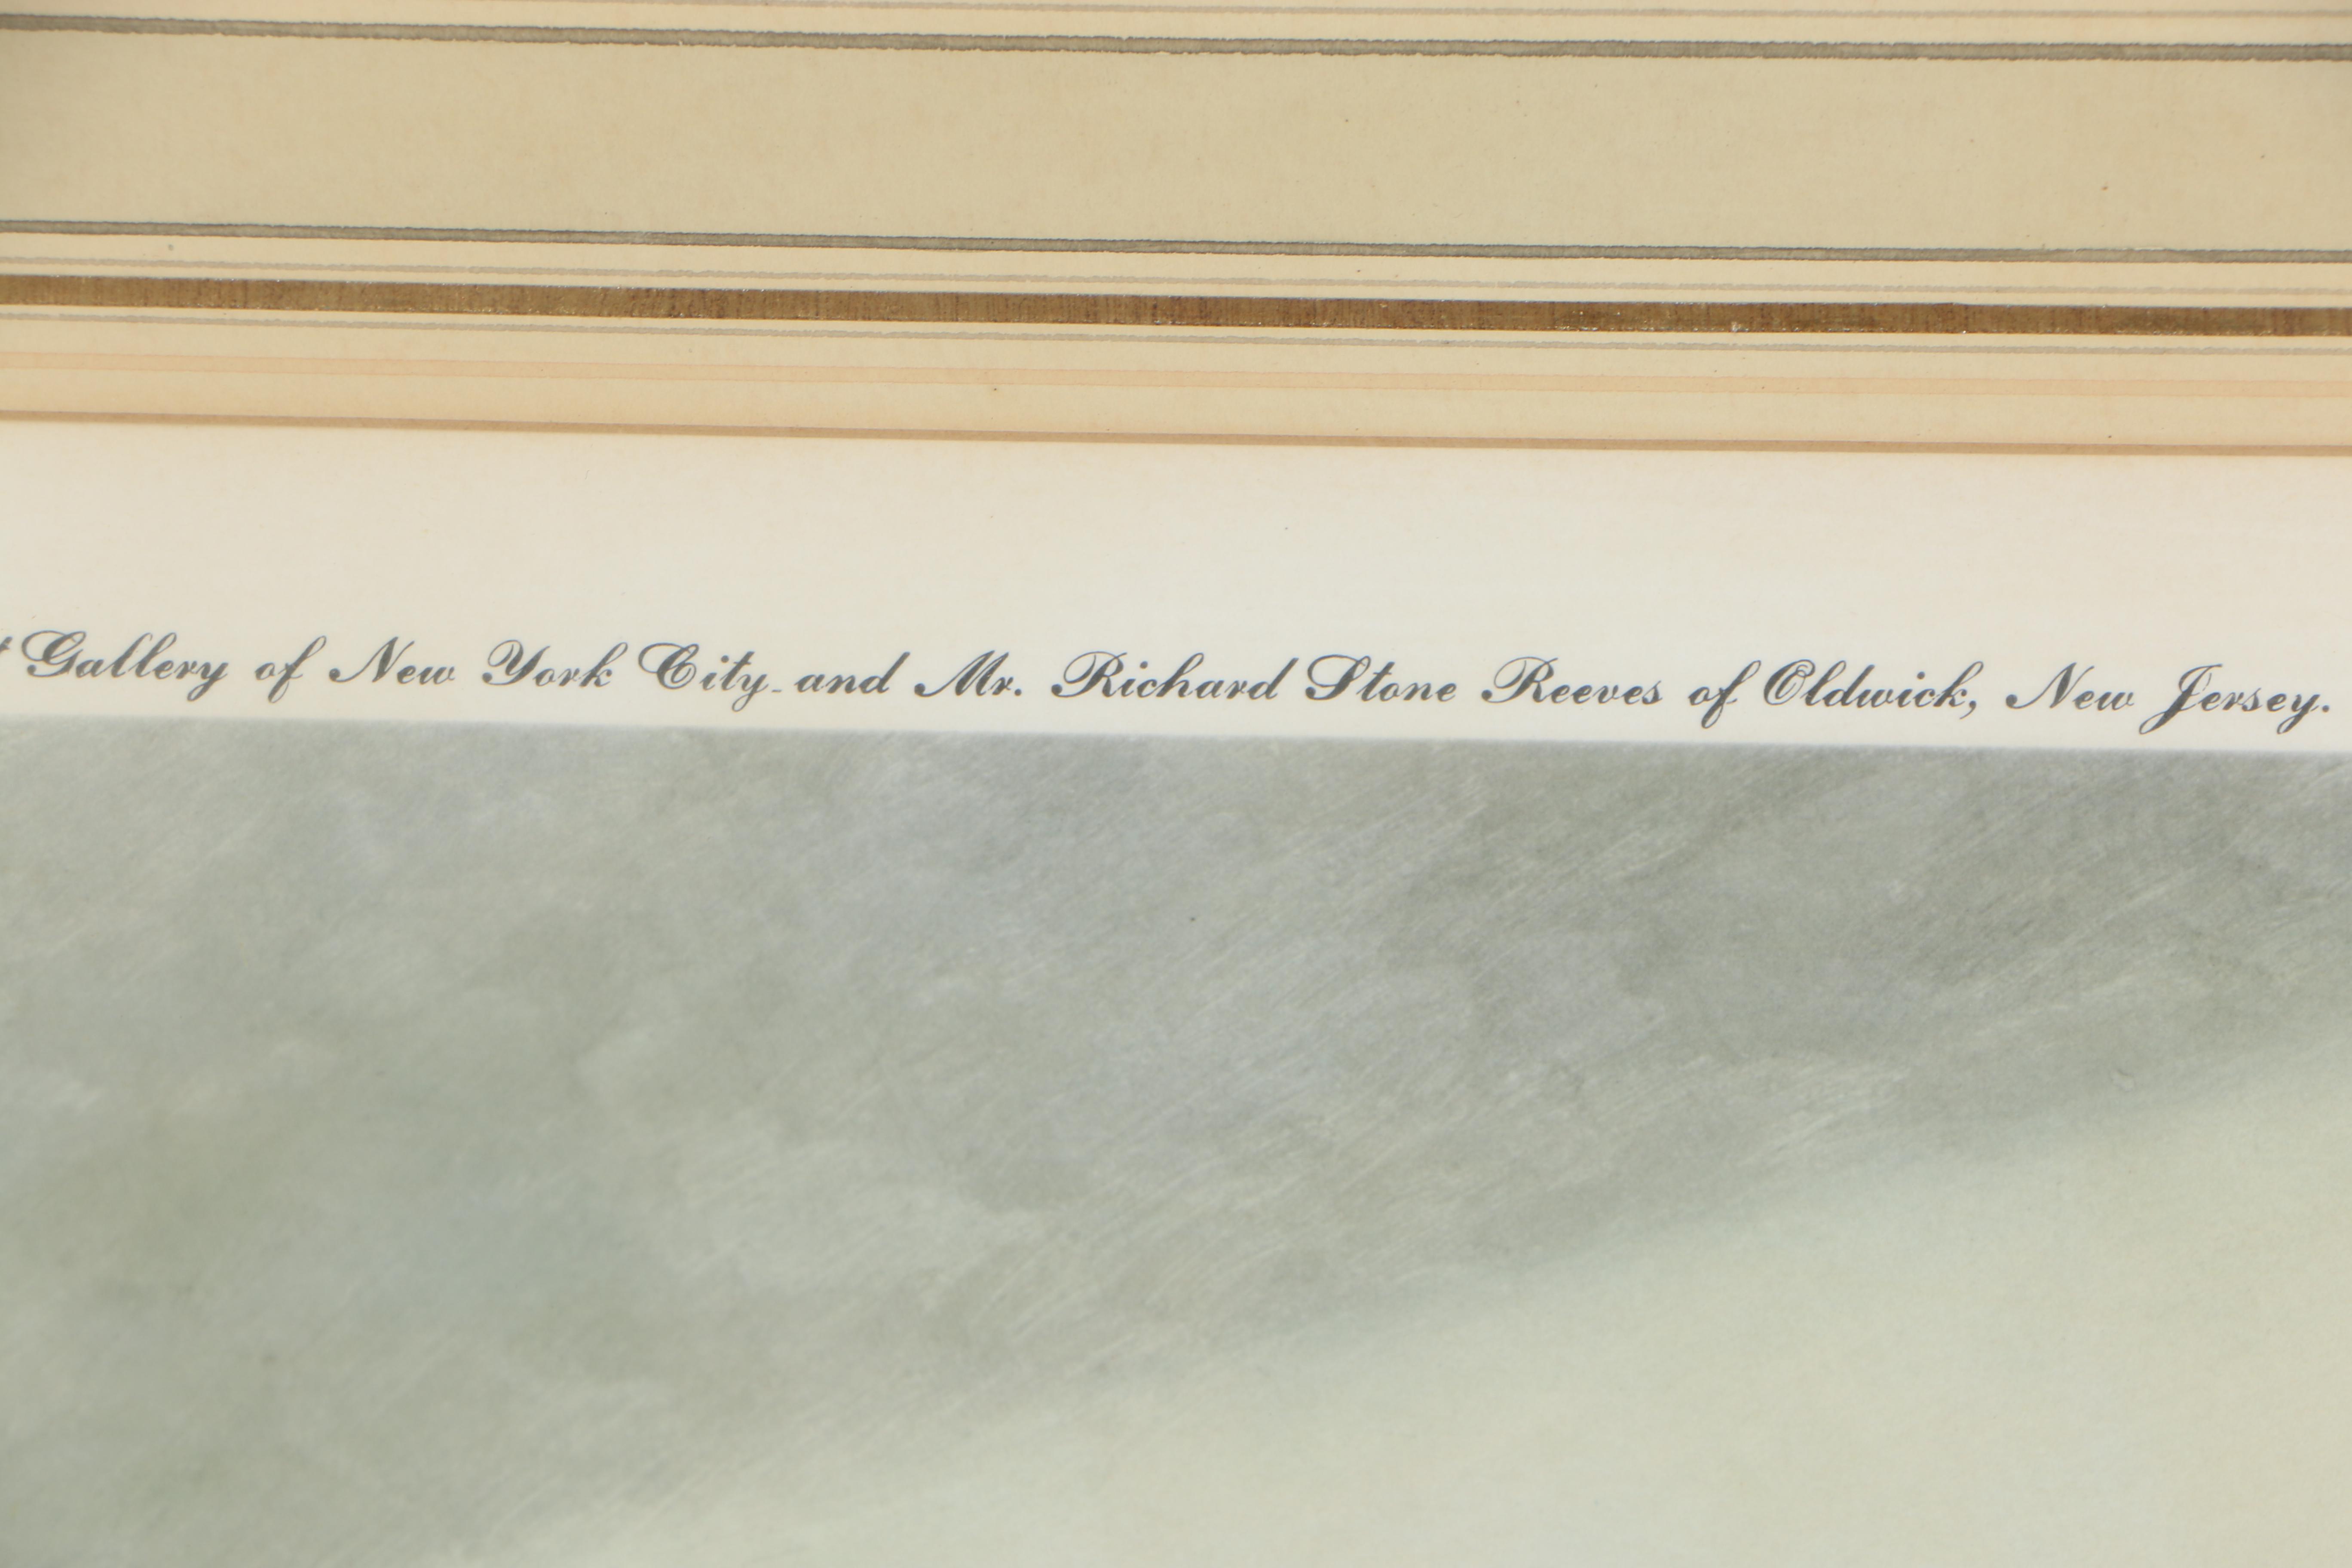 Gallery of New York City and Mr. Richard Stone Reeves of Oldwick, New Jersey.